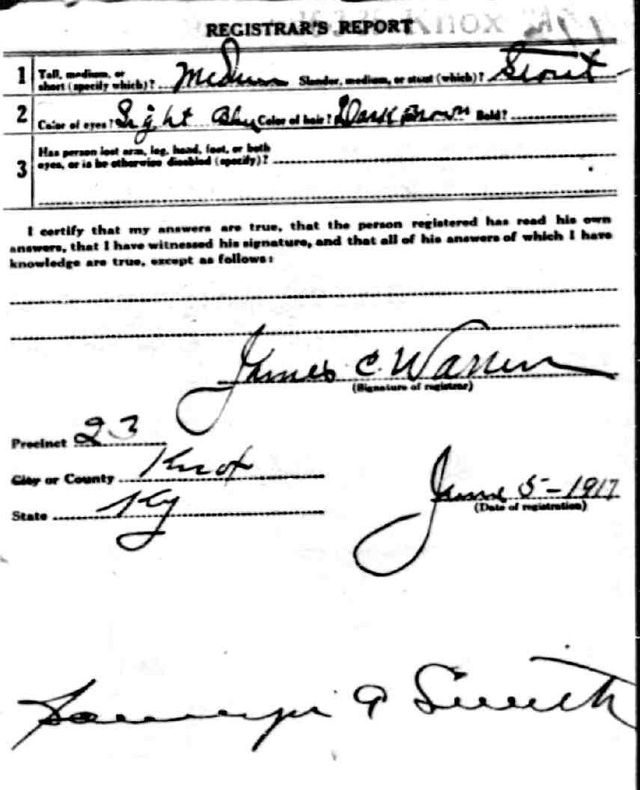 REGISTRAR'S REPORT
1 Tall, medium, or short (specify which)? Medium Slender, medium, or stout (which)? Stout
2 Color of eyes? Light Blue Color of hair? Dark Brown Bald?
3 Has person lost arm, leg, hand, foot, or both eyes, or is he otherwise disabled (specify)?
I certify that my answers are true, that the person registered has read his own
answers, that I have witnessed his signature, and that all of his answers of which I have
knowledge are true, except as follows:
James C Warren
(Signature of registrar)
Precinct 23
City or County Knox
State Ky
June 5-1917
(Date of registration)
A Smith